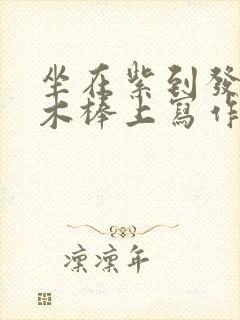 坐在紫到發
木棒上寫作
凜凜年